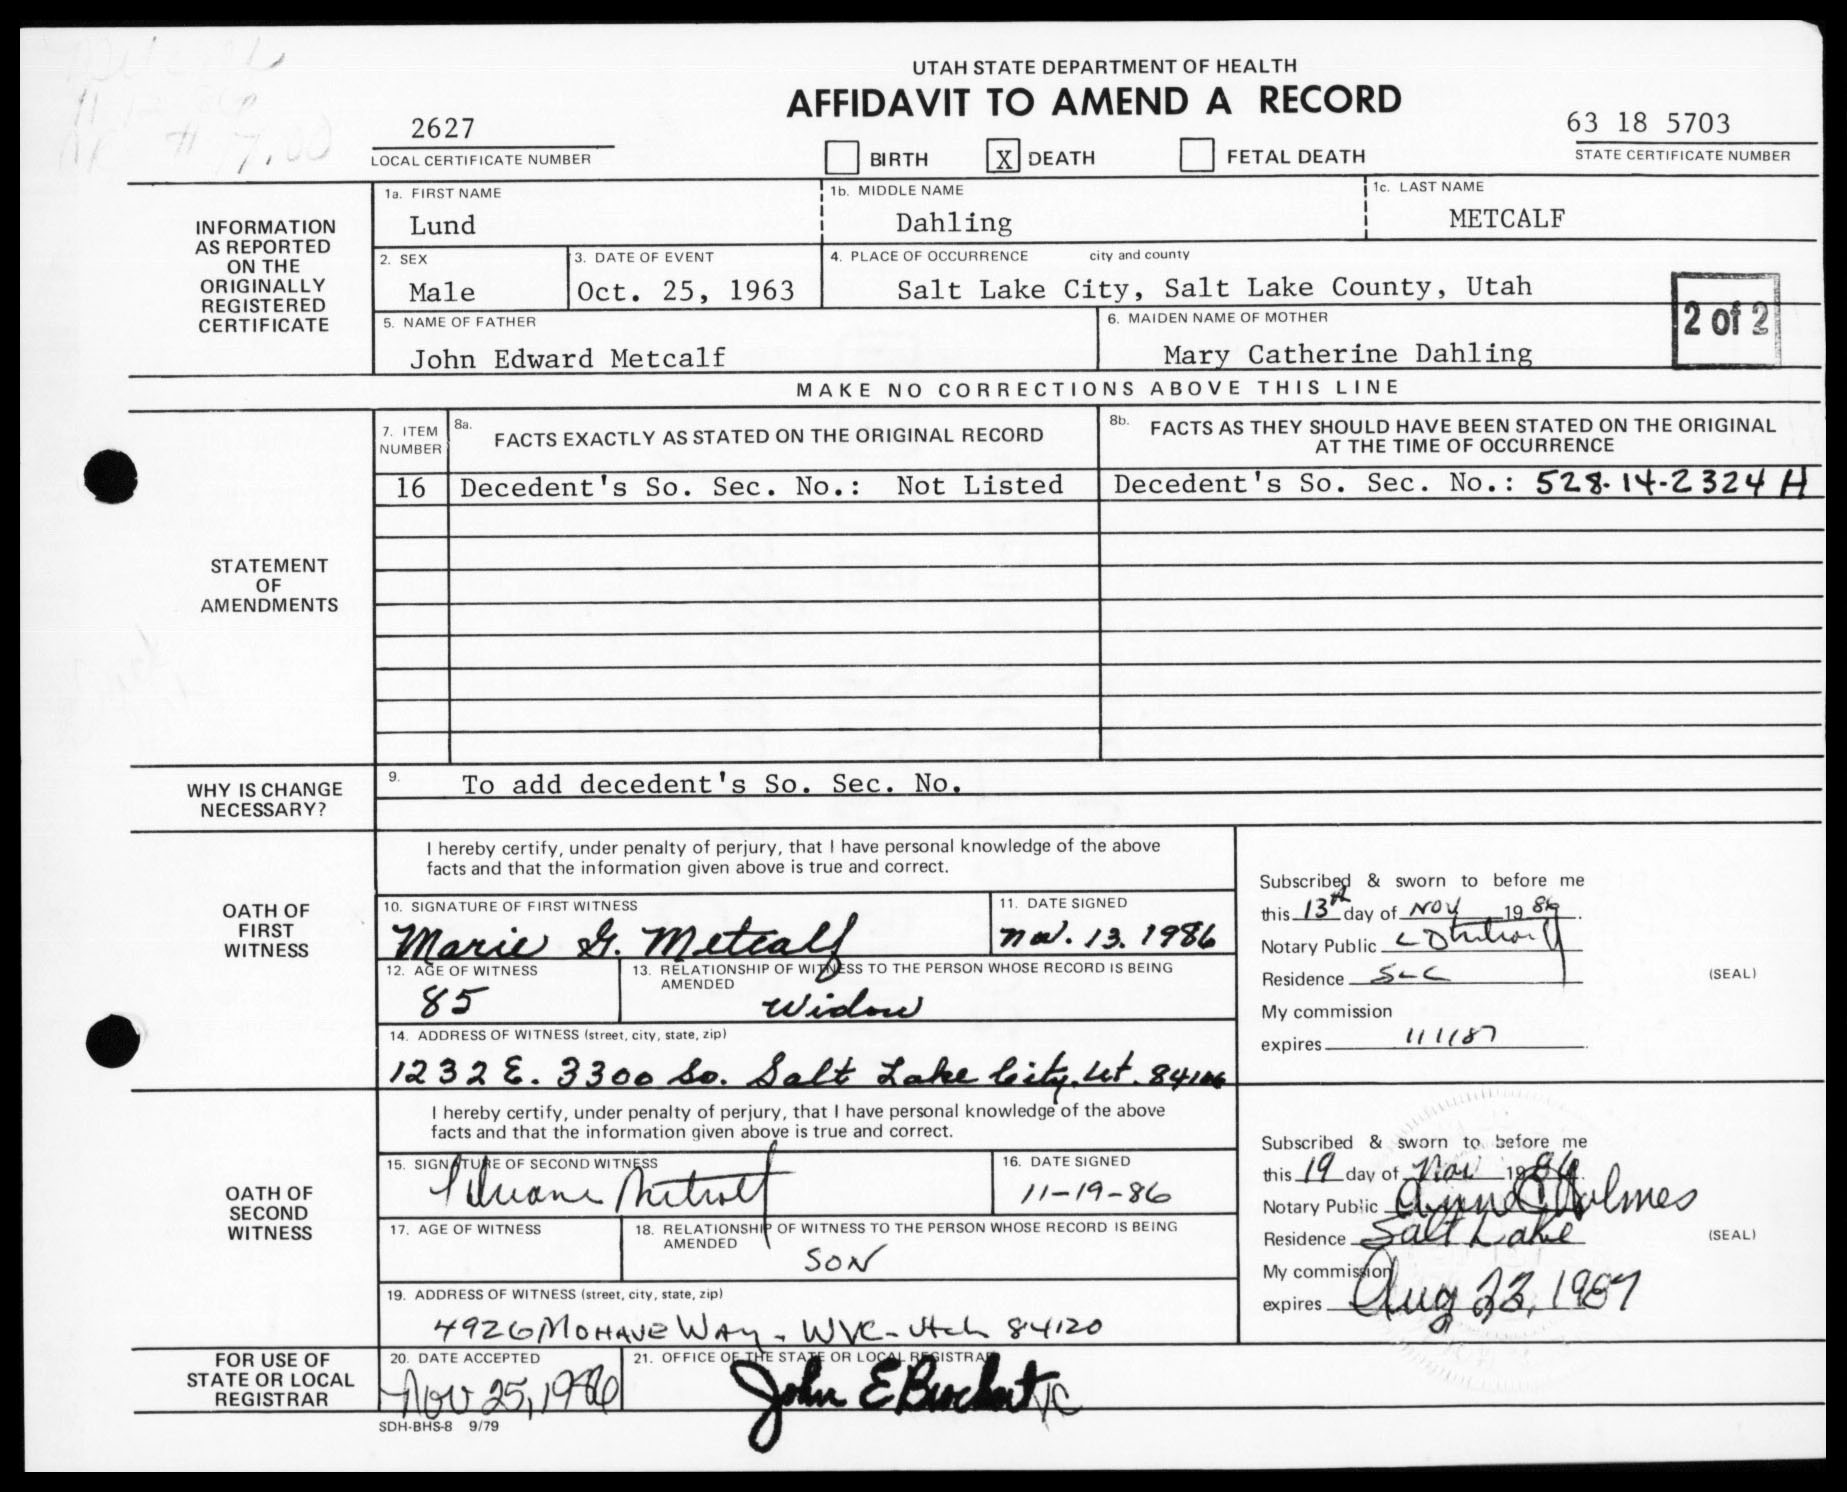 UTAH STATE DEPARTMENT OF HEALTH
AFFIDAVIT TO AMEND A RECORD
2627
LOCAL CERTIFICATE NUMBER
BIRTH
X DEATH
FETAL DEATH
63 18 5703
STATE CERTIFICATE NUMBER
INFORMATION
AS REPORTED
ON THE
ORIGINALLY
REGISTERED
CERTIFICATE
1a. FIRST NAME
Lund
1b. MIDDLE NAME
Dahling
1c. LAST NAME
METCALF
2. SEX
Male
3. DATE OF EVENT
Oct. 25, 1963
4. PLACE OF OCCURRENCE city and county
Salt Lake City, Salt Lake County, Utah
2 of 2
5. NAME OF FATHER
John Edward Metcalf
6. MAIDEN NAME OF MOTHER
Mary Catherine Dahling
MAKE NO CORRECTIONS ABOVE THIS LINE
STATEMENT
OF
AMENDMENTS
7. ITEM
NUMBER
8a.
FACTS EXACTLY AS STATED ON THE ORIGINAL RECORD
8b. FACTS AS THEY SHOULD HAVE BEEN STATED ON THE ORIGINAL
AT THE TIME OF OCCURRENCE
16 Decedent's So. Sec. No.: Not Listed Decedent's So. Sec. No.: 528-14-2324 H
WHY IS CHANGE
NECESSARY?
9. To add decedent's So. Sec. No.
OATH OF
FIRST
WITNESS
I hereby certify, under penalty of perjury, that I have personal knowledge of the above
facts and that the information given above is true and correct.
10. SIGNATURE OF FIRST WITNESS
Marie G. Metcalf
11. DATE SIGNED
Nov. 13. 1986
12. AGE OF WITNESS
85
13. RELATIONSHIP OF WITNESS TO THE PERSON WHOSE RECORD IS BEING
AMENDED
Widow
14. ADDRESS OF WITNESS (street, city, state, zip)
1232 E. 3300 So. Salt Lake City, Ut. 84106
Subscribed & sworn to before me
this 13th day of Nov 1986.
Notary Public
Residence SLC
(SEAL)
My commission
expires 11/1/87
OATH OF
SECOND
WITNESS
I hereby certify, under penalty of perjury, that I have personal knowledge of the above
facts and that the information given above is true and correct.
15. SIGNATURE OF SECOND WITNESS
16. DATE SIGNED
11-19-86
17. AGE OF WITNESS
18. RELATIONSHIP OF WITNESS TO THE PERSON WHOSE RECORD IS BEING
AMENDED
SON
19. ADDRESS OF WITNESS (street, city, state, zip)
4926 MOHAVE WAY - WVC - Utah 84120
Subscribed & sworn to before me
this 19 day of Nov 1986
Notary Public Anne C Holmes
Residence Salt Lake
(SEAL)
My commission
expires Aug 23, 1987
FOR USE OF
STATE OR LOCAL
REGISTRAR
20. DATE ACCEPTED
Nov 25, 1986
21. OFFICE OF THE STATE OR LOCAL REGISTRAR
John E Brockert
SDH-BHS-8 9/79